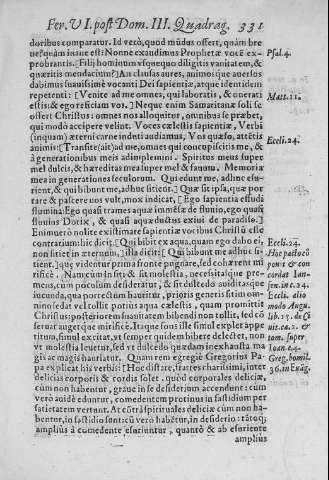 Fer. VI. post Dom. III. Quadrag. 331
doribus comparatur. Id verò, quod mũdus offert, quàm bre
ue? quàm inane est: Nonne exaudimus Prophetæ vocẽ ex-
probrantis. [Filij hominum vsquequo diligitis vanitatem, &
quæritis mendacium?] An clausas aures, animosque auersos
dabimus suauissimè vocanti Dei sapientiæ, atque identidem
repetenti: [Venite ad me omnes, qui laboratis, & onerati
estis: & ego reficiam vos.] Neque enim Samaritanæ soli se
offert Christus: omnes nos alloquitur, omnibus se præbet,
qui modò accipere velint. Voces cælestis sapientiæ, Verbi
(inquam) æterni carne induti audiamus, Vos quæso, attẽtis
animis: [Transite (ait) ad me, omnes qui concupiscitis me, &
à generationibus meis adimplemini. Spiritus meus super
mel dulcis, & hæreditas mea super mel & fauum. Memoria
mea in generationes seculorum. Qui edunt me, adhuc esu-
rient, & qui bibunt me, adhuc sitient.] Quæ sit ipsa, quæ por
tare & pascere nos vult, mox indicat, [Ego sapientia effudi
flumina: Ego quasi trames aquæ immẽsæ de fluuio, ego quasi
fluuius Dorix, & quasi aquæductus exiui de paradiso.]
Enimuerò nolite existimare sapientiæ vocibus Christũ esse
contrarium: hic dicit: [Qui bibit ex aqua, quam ego dabo ei,
non sitiet in æternum.] illa dicit: [Qui bibunt me adhuc si-
tient.] quæ videntur prima fronte pugnare, sed cohærent mi
rificè. Nam cùm in siti & sit molestia, necessitatque pre-
mens, cùm poculum desideratur, & sit dulcedo auiditasque
iucunda, qua porrectum hauritur, prioris generis sitim om-
nino sedat vel tollit potius aqua cælestis, quam promittit
Christus: posteriorem suauitatem bibendi non tollit, sed cõ
seruat auget que mirificè. Itaque fons ille simul explet appe
titum, simul excitat, vt semper quidem bibere delectet, non
vt molestia leuetur, sed vt dulcedo quædam inexhausta ma
gis ac magis hauriatur. Quam rem egregiè Gregorius Pa-
pa explicat his verbis: [Hoc distare, fratres charissimi, inter
delicias corporis & cordis solet, quòd corporales deliciæ,
cùm non habentur, graue in se desiderium accendunt: cùm
verò auidè eduntur, comedentem protinus in fastidium per
satietatem vertunt. At cõtrà spirituales deliciæ cùm non ha-
bentur, in fastidio sunt: cùm verò habẽtur, in desiderio: tãtoq;
ampliùs à comedente esuriuntur, quantò & ab esuriente
ampliùs
Psal. 4.
Matt. 11.
Eccli. 24.
Eccli. 24.
Iansen. in c. 24.
Eccli. alio
modo Augu.
Ioan. c. 4.
Greg. homil.
36. in Euãg.